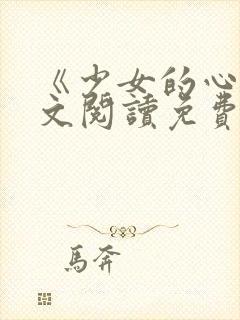 《少女的心
文閱讀免費
馬奔